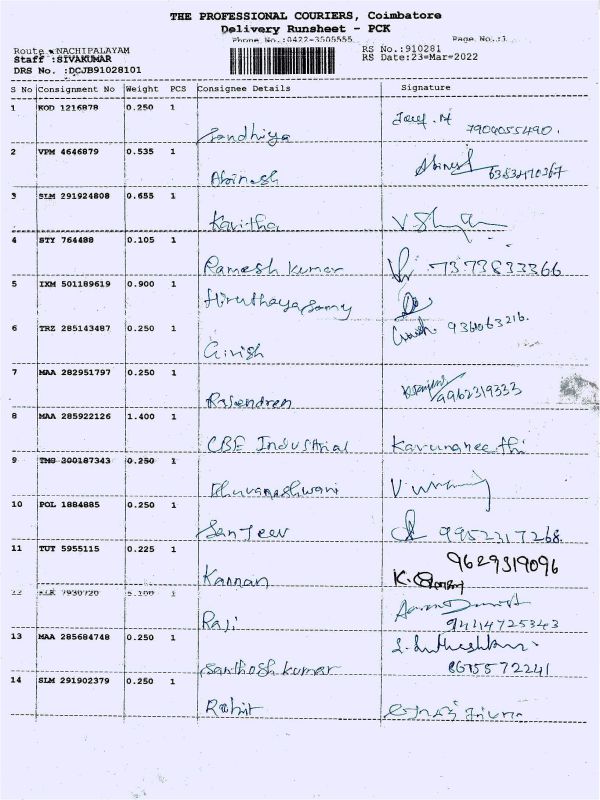 THE PROFESSIONAL COURIERS, Coimbatore
Delivery Runsheet - PCK
Phone No.:0422-3505555 Page No.:1
Route :NACHIPALAYAM RS No.:910281
Staff :SIVAKUMAR RS Date:23-Mar-2022
DRS No. :DCJB91028101
S No Consignment No Weight PCS Consignee Details Signature
1 KOD 1216878 0.250 1
Sandhiya 7904055490.
2 VPM 4646879 0.535 1
Abinesh Abinesh
3 SLM 291924808 0.655 1
Kavitha
4 STY 764488 0.105 1
Ramesh kumar 7373833366
5 IXM 501189619 0.900 1
Hiruthaya Samy
6 TRZ 285143487 0.250 1
Girish
7 MAA 282951797 0.250 1
Rajendren 9962319333
8 MAA 285922126 1.400 1
CBE Industrial Karunaneethi
9 TMS 300187343 0.250 1
Bhuvaneshwari
10 POL 1884885 0.250 1
Sanjeev 9952317268.
11 TUT 5955115 0.225 1
9629319096
Kannan
12 7930720 5.100 1
Raji 9444725343
13 MAA 285684748 0.250 1
Santhosh kumar
14 SLM 291902379 0.250 1
Rohit